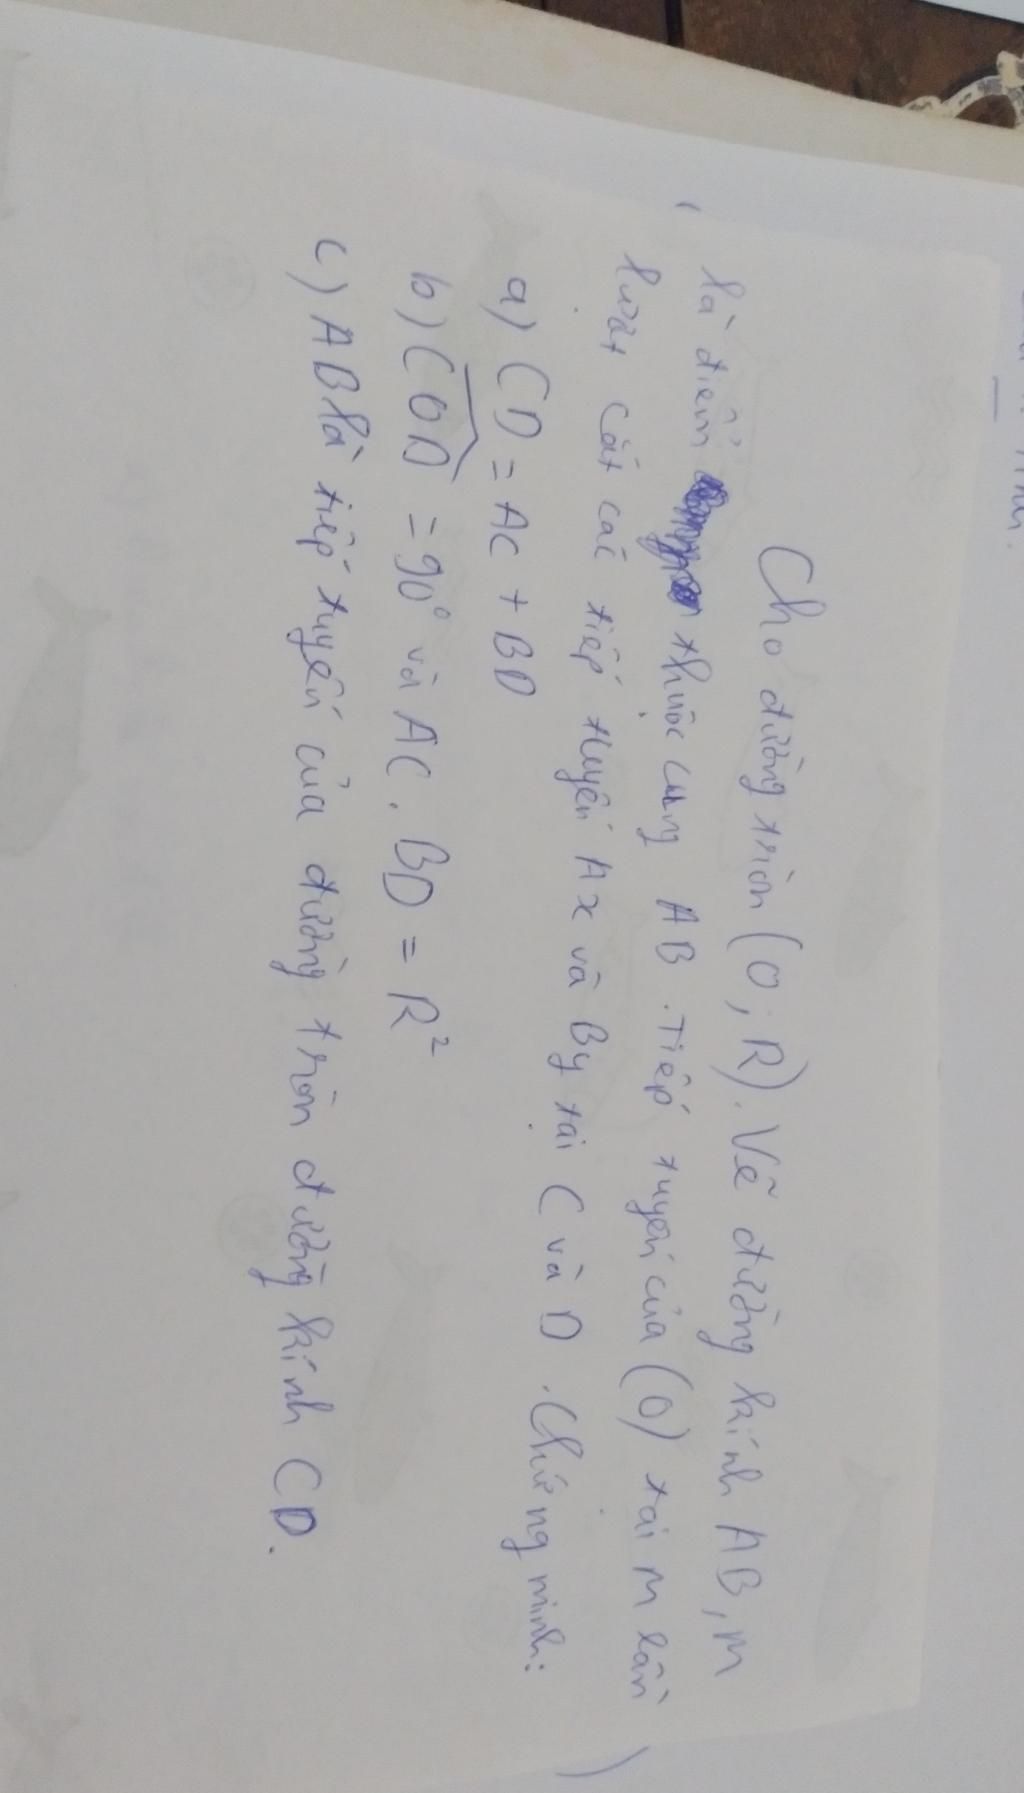 Cho đường tròn (O; R). Vẽ đường kính AB, M
là điểm thuộc cung AB. Tiếp tuyến của (O) tại M lần
lượt cắt các tiếp tuyến Ax và By tại C và D. Chứng minh:
a) CD = AC + BD
b) COD = 90° và AC. BD = R²
c) AB là tiếp tuyến của đường tròn đường kính CD.